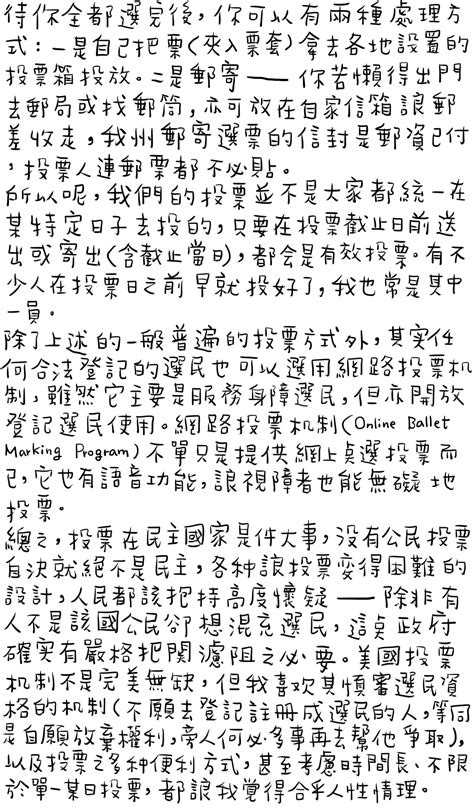 待你全都選完後，你可以有兩種處理方
式：一是自己把票(夾入票套)拿去各地設置的
投票箱投放。二是郵寄 —— 你若懶得出門
去郵局或找郵筒，亦可放在自家信箱讓郵
差收走，我州郵寄選票的信封是郵資已付
，投票人連郵票都不必貼。
所以呢，我們的投票並不是大家都統一在
某特定日子去投的，只要在投票截止日前送
出或寄出(含截止當日)，都會是有效投票。有不
少人在投票日之前早就投好了，我也常是其中
一員。
除了上述的一般普遍的投票方式外，其實任
何合法登記的選民也可以選用網路投票机
制，雖然它主要是服務身障選民，但亦開放
登記選民使用。網路投票机制(Online Ballet
Marking Program)不單只是提供網上點選投票而
已，它也有語音功能，讓視障者也能無礙地
投票。
總之，投票在民主國家是件大事，沒有公民投票
自決就絕不是民主，各種讓投票變得困難的
設計，人民都該把持高度懷疑 —— 除非有
人不是該國公民卻想混充選民，這點政府
確實有嚴格把關濾阻之必要。美國投票
机制不是完美無缺，但我喜欢其慎審選民資
格的机制(不願去登記註冊成選民的人，等同
是自願放棄權利，旁人何必多事再去幫他爭取)，
以及投票之多种便利方式，甚至考慮時間長、不限
於單一某日投票，都讓我覺得合乎人性情理。